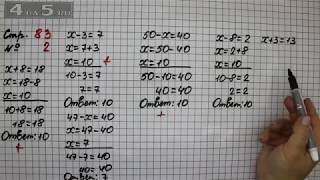 4 📖 5 RU
Стр. 83
№ 2
x+8=18
x=18-8
x=10
10+8=18
18=18
Ответ: 10
+
x-3=7
x=7+3
x=10 +
10-3=7
7=7
Ответ: 10
47-x=40
x=47-40
x=7
47-7=40
40=40
Ответ: 7
50-x=40
x=50-40
x=10
50-10=40
40=40
Ответ: 10
+
x-8=2
x=2+8
x=10
10-8=2
2=2
Ответ: 10
x+3=13